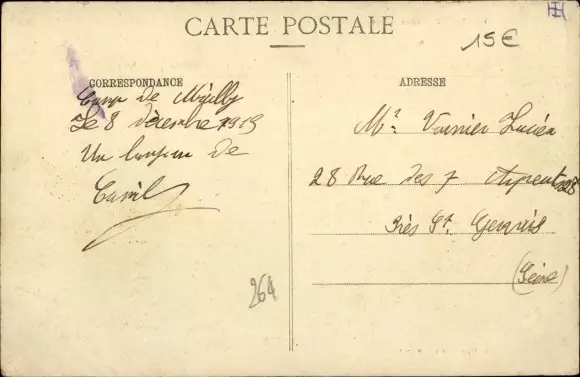 CARTE POSTALE
15€
CORRESPONDANCE
Camp de Mailly
Le 8 décembre 1913
Un bonjour de
Camil
264
ADRESSE
Mr. Varnier Lucien
28 Rue des 7 Arpents 28
Près St. Gervais
(Seine)